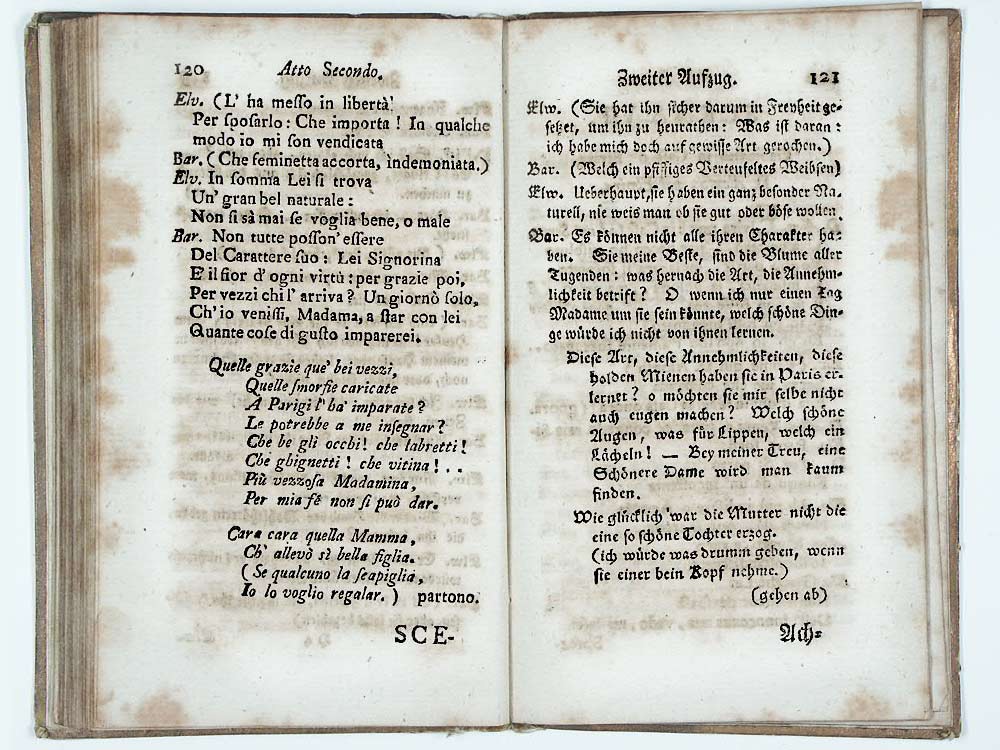 120 Atto Secondo.
Elv. (L' ha messo in libertà!
Per sposarlo: Che importa! In qualche
modo io mi son vendicata
Bar. (Che feminetta accorta, indemoniata.)
Elv. In somma Lei si trova
Un' gran bel naturale:
Non si sà mai se voglia bene, o male
Bar. Non tutte posson' essere
Del Carattere suo: Lei Signorina
E il fior d' ogni virtù: per grazie poi,
Per vezzi chi l' arriva? Un giornò solo,
Ch' io venissi, Madama, a star con lei
Quante cose di gusto imparerei.
Quelle grazie que' bei vezzi,
Quelle smorfie caricate
A Parigi l' hà imparate?
Le potrebbe a me insegnar?
Che be gli occhi! che labretti!
Che ghignetti! che vitina! . .
Più vezzosa Madamina,
Per mia fè non si può dar.
Cara cara quella Mamma,
Ch' allevò sì bella figlia.
(Se qualcuno la scapiglia,
Io lo voglio regalar.) partono.
SCE-
Zweiter Aufzug. 121
Elw. (Sie hat ihn sicher darum in Freyheit ge-
setzet, um ihn zu heurathen: Was ist daran:
ich habe mich doch auf gewisse Art gerochen.)
Bar. (Welch ein pfiffiges Verteufeltes Weibsen)
Elw. Ueberhaupt, sie haben ein ganz besonder Na-
turell, nie weis man ob sie gut oder böse wollen.
Bar. Es können nicht alle ihren Charakter ha-
ben. Sie meine Beste, sind die Blume aller
Tugenden: was hernach die Art, die Annehm-
lichkeit betrift? O wenn ich nur einen Tag
Madame um sie sein könnte, welch schöne Din-
ge würde ich nicht von ihnen lernen.
Diese Art, diese Annehmlichkeiten, diese
holden Mienen haben sie in Paris er-
lernet? o möchten sie mir selbe nicht
auch eugen machen? Welch schöne
Augen, was für Lippen, welch ein
Lächeln! — Bey meiner Treu, eine
Schönere Dame wird man kaum
finden.
Wie glücklich war die Mutter nicht die
eine so schöne Tochter erzog.
(ich würde was drumm geben, wenn
sie einer bein Kopf nehme.)
(gehen ab)
Ach-